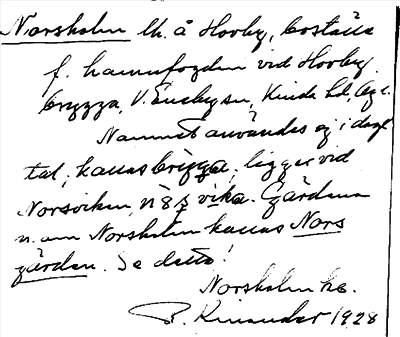 Norsholm lh. å Hovby, boställ
f. hamnfogden vid Hovby
brygga, V. Eneby sn, Kinda hd, Ög l.
Namnet användes ej i dagl
tal; kallas brygga, ligger vid
Norsviken, i vika. Gårdens
n:am Norsholm kallas Nors
gården. Se detta!
Norsholm ks.
R. Kinander 1928